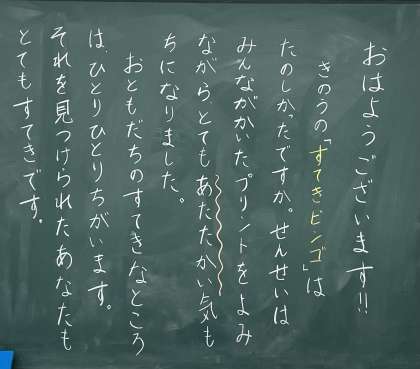 おはようございます!!
きのうの「すてきビンゴ」は
たのしかったですか。せんせいは
みんながかいたプリントをよみ
ながらとてもあたたかい気も
ちになりました。
おともだちのすてきなところ
は、ひとりひとりちがいます。
それを見つけられたあなたも
とてもすてきです。